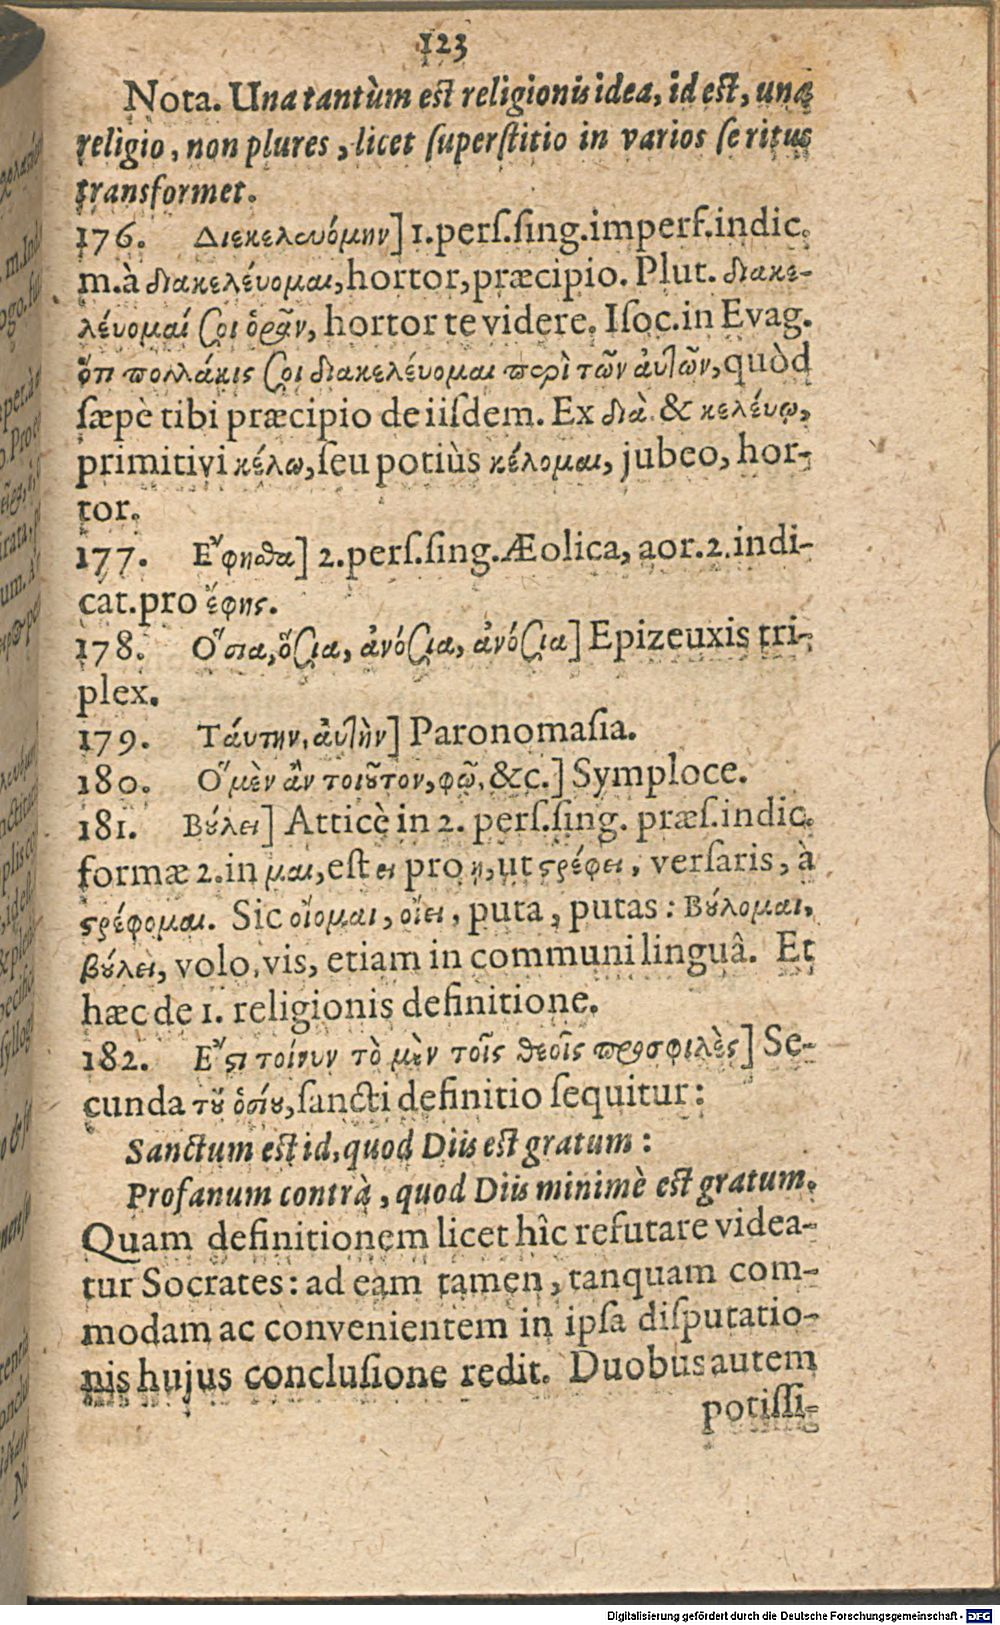 123
Nota. Una tantùm est religionis idea, id est, una
religio, non plures, licet ſuperſtitio in varios ſe ritus
transformet.
176. Διεκελευόμην] 1. perſ. ſing. imperf. indic.
m. à διακελέυομαι, hortor, præcipio. Plut. διακε-
λέυομαί σοι ὁρᾶν, hortor te videre. Iſoc. in Evag.
ὅτι πολλάκις σοι διακελέυομαι περὶ τῶν ἀυτῶν, quòd
ſæpè tibi præcipio de iiſdem. Ex διὰ & κελέυω,
primitivi κέλω, ſeu potiùs κέλομαι, jubeo, hor-
tor.
177. Ε῎φησθα] 2. perſ. ſing. Æolica, aor. 2. indi-
cat. pro ἔφης.
178. Ο῞σια, ὅσια, ἀνόσια, ἀνόσια] Epizeuxis tri-
plex.
179. Τάυτην, ἀυτὴν] Paronomaſia.
180. Ο῞ μὲν ἂν τοιοῦτον, φῶ, &c.] Symploce.
181. Βούλει] Atticè in 2. perſ. ſing. præſ. indic.
formæ 2. in μαι, eſt ει pro η, ut στρέφει, verſaris, à
στρέφομαι. Sic οἴομαι, οἴει, puta, putas: Βούλομαι,
βούλει, volo, vis, etiam in communi linguâ. Et
hæc de 1. religionis definitione.
182. Ε῎στι τοίνυν τὸ μὲν τοῖς θεοῖς προσφιλὲς] Se-
cunda τοῦ ὁσίου, ſancti definitio ſequitur:
Sanctum eſt id, quod Diis eſt gratum:
Profanum contrà, quod Diis minimè eſt gratum.
Quam definitionem licet hîc refutare videa-
tur Socrates: ad eam tamen, tanquam com-
modam ac convenientem in ipſa diſputatio-
nis hujus concluſione redit. Duobus autem
potiſſi-
Digitalisierung gefördert durch die Deutsche Forschungsgemeinschaft - DFG